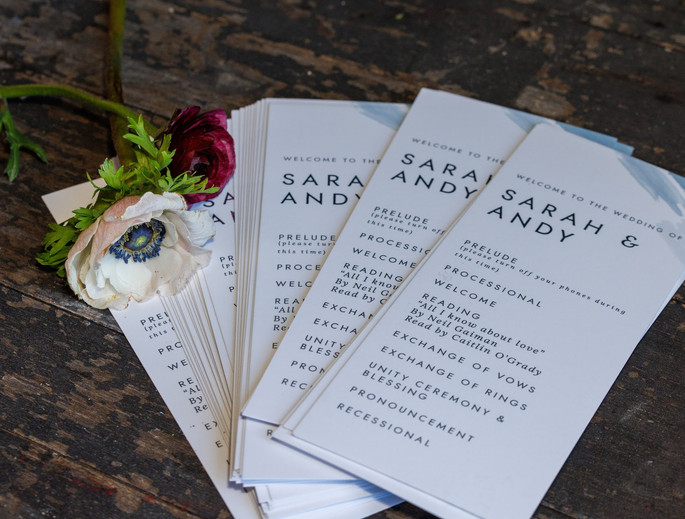 WELCOME TO THE WEDDING OF
SARAH &
ANDY
PRELUDE
(please turn off your phones during
this time)
PROCESSIONAL
WELCOME
READING
"All I know about love"
By Neil Gaiman
Read by Caitlin O'Grady
EXCHANGE OF VOWS
EXCHANGE OF RINGS
UNITY CEREMONY &
BLESSING
PRONOUNCEMENT
RECESSIONAL
WELCOME TO THE
SARAH
ANDY
PRELUDE
(please turn off
this time)
PROCESSIO
WELCOME
READING
"All I know
By Neil Ga
Read by Ca
EXCHANG
EXCHAN
UNITY C
BLESSIN
PRONOU
RECESS
WELCOME TO THE
SARA
ANDY
PRELUDE
(please turn
this time)
PROCESS
WELC
READI
"All
By N
Read
EXCH
EXCH
UNITY
BLESS
PRONO
RECES